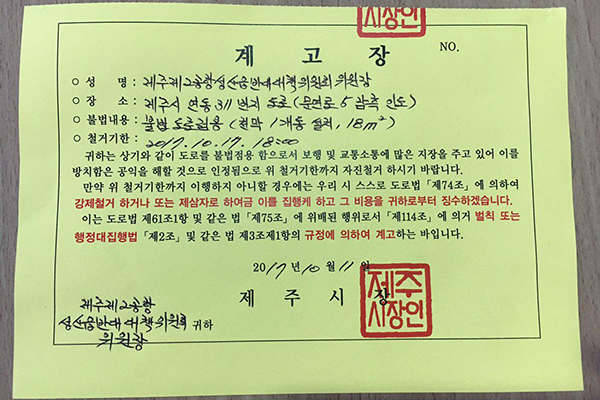 시장인
계 고 장
NO.
○ 성 명 : 제주제2공항성산읍반대대책위원회 위원장
○ 장 소 : 제주시 연동 311번지 도로(문연로 5 남측 인도)
○ 불법내용 : 불법 도로점용 (천막 1개동 설치, 18㎡)
○ 철거기한 : 2017. 10. 17. 18:00
귀하는 상기와 같이 도로를 불법점용 함으로서 보행 및 교통소통에 많은 지장을 주고 있어 이를
방치함은 공익을 해할 것으로 인정됨으로 위 철거기한까지 자진철거 하시기 바랍니다.
만약 위 철거기한까지 이행하지 아니할 경우에는 우리 시 스스로 도로법 「제74조」에 의하여
강제철거 하거나 또는 제삼자로 하여금 이를 집행케 하고 그 비용을 귀하로부터 징수하겠습니다.
이는 도로법 제61조1항 및 같은 법 「제75조」에 위배된 행위로서 「제114조」에 의거 벌칙 또는
행정대집행법 「제2조」 및 같은 법 제3조제1항의 규정에 의하여 계고하는 바입니다.
2017년 10월 11일
제 주 시 장
제주
시장인
제주제2공항
성산읍반대대책위원회 귀하
위원장